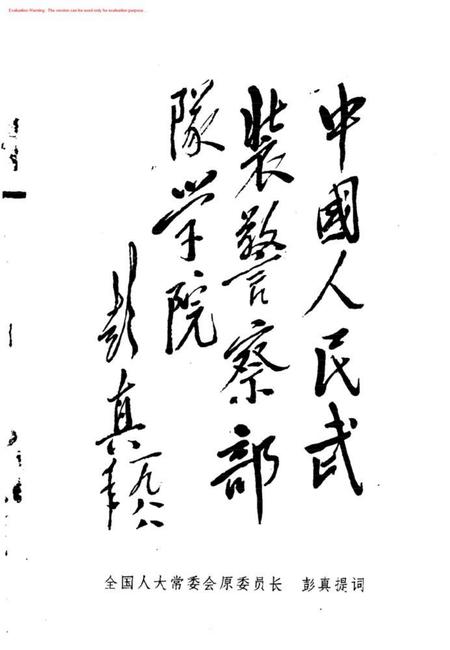 Evaluation Warning : The version can be used only for evaluation purpose...
中國人民武
裝警察部
隊学院
彭真
一九八八年
全国人大常委会原委员长 彭真提词